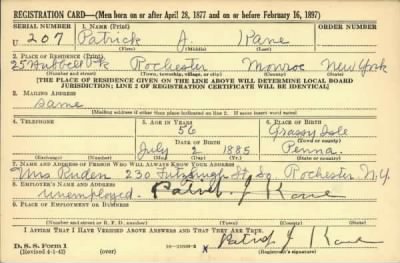 REGISTRATION CARD—(Men born on or after April 28, 1877 and on or before February 16, 1897)
SERIAL NUMBER 1. NAME (Print) ORDER NUMBER
U 207 Patrick A. Kane
(First) (Middle) (Last)
2. PLACE OF RESIDENCE (Print)
25 Hubbell Pk Rochester Monroe New York
(Number and street) (Town, township, village, or city) (County) (State)
[THE PLACE OF RESIDENCE GIVEN ON THE LINE ABOVE WILL DETERMINE LOCAL BOARD
JURISDICTION; LINE 2 OF REGISTRATION CERTIFICATE WILL BE IDENTICAL]
3. MAILING ADDRESS
Same
[Mailing address if other than place indicated on line 2. If same insert word same]
4. TELEPHONE 5. AGE IN YEARS 6. PLACE OF BIRTH
56 Grassy Isle
DATE OF BIRTH (Town or county)
July 2 1885 Penna.
(Exchange) (Number) (Mo.) (Day) (Yr.) (State or country)
7. NAME AND ADDRESS OF PERSON WHO WILL ALWAYS KNOW YOUR ADDRESS
Mrs Ruden 230 Fitzhugh St So. Rochester N.Y.
8. EMPLOYER'S NAME AND ADDRESS
Unemployed. Patrick J Kane
9. PLACE OF EMPLOYMENT OR BUSINESS
(Number and street or R. F. D. number) (Town) (County) (State)
I AFFIRM THAT I HAVE VERIFIED ABOVE ANSWERS AND THAT THEY ARE TRUE.
D. S. S. Form 1
(Revised 4-1-42) (over) x Patrick J Kane
(Registrant's signature)